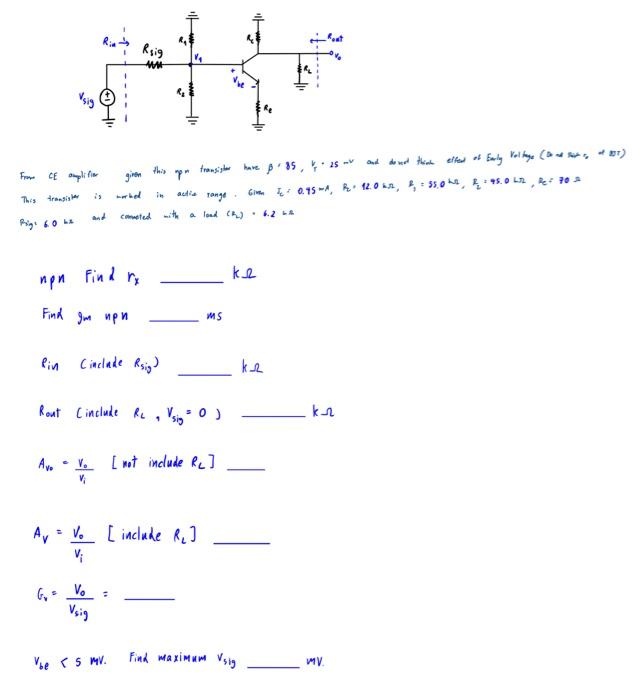 Rin →
Rsig
R1
V1
Rc
Rout
Vo
RL
+
Vbe
-
Vsig
R2
Re
From CE amplifier given this npn transistor have β = 85, VT = 25 mV and do not think effect of Early Voltage (Do not think ro of BJT)
This transistor is worked in active range. Given Ic = 0.95 mA, Rc = 12.0 kΩ, R1 = 55.0 kΩ, R2 = 45.0 kΩ, Re = 70 Ω
Rsig = 6.0 kΩ and connected with a load (RL) = 6.2 kΩ
npn Find rπ ______ kΩ
Find gm npn ______ ms
Rin (include Rsig) ______ kΩ
Rout (include RL, Vsig = 0) ______ kΩ
Avo = Vo/Vi [not include RL] ______
Av = Vo/Vi [include RL] ______
Gv = Vo/Vsig = ______
Vbe < 5 mV. Find maximum Vsig ______ mV.